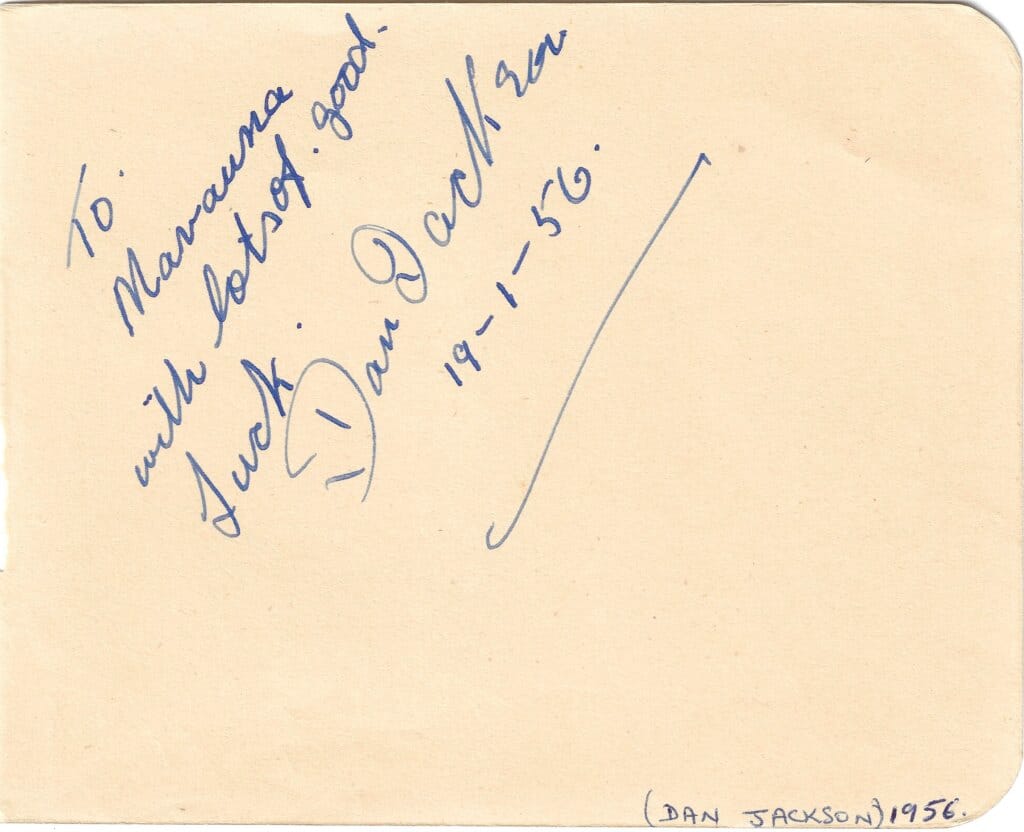 To.
Marauna
with lots of. good.
Luck.
Dan Jackson
19-1-56.
(DAN JACKSON) 1956.